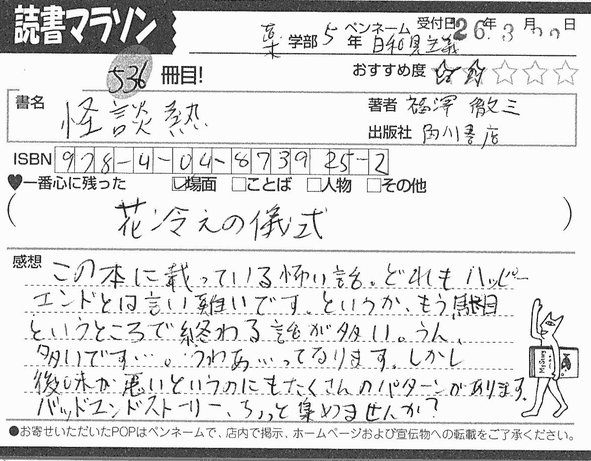 読書マラソン
薬 学部 5 年 ペンネーム 日和見主義 受付日 26年 3月 20日
536 冊目! おすすめ度 ☆☆☆☆☆
書名 怪談熱
著者 福澤 徹三
出版社 角川書店
ISBN 978-4-04-873925-2
♥一番心に残った ☑場面 □ことば □人物 □その他
(花冷えの儀式)
感想
この本に載っている怖い話。どれもハッピー
エンドとは言い難いです。というか、もう駄目
というところで終わる話が多い。うん、
多いです…。うわあ…ってなります。しかし
後味が悪いというのにもたくさんのパターンがあります。
バッドエンドストーリー、ちょっと集めませんか?
●お寄せいただいたPOPはペンネームで、店内で掲示、ホームページおよび宣伝物への転載をご了承ください。